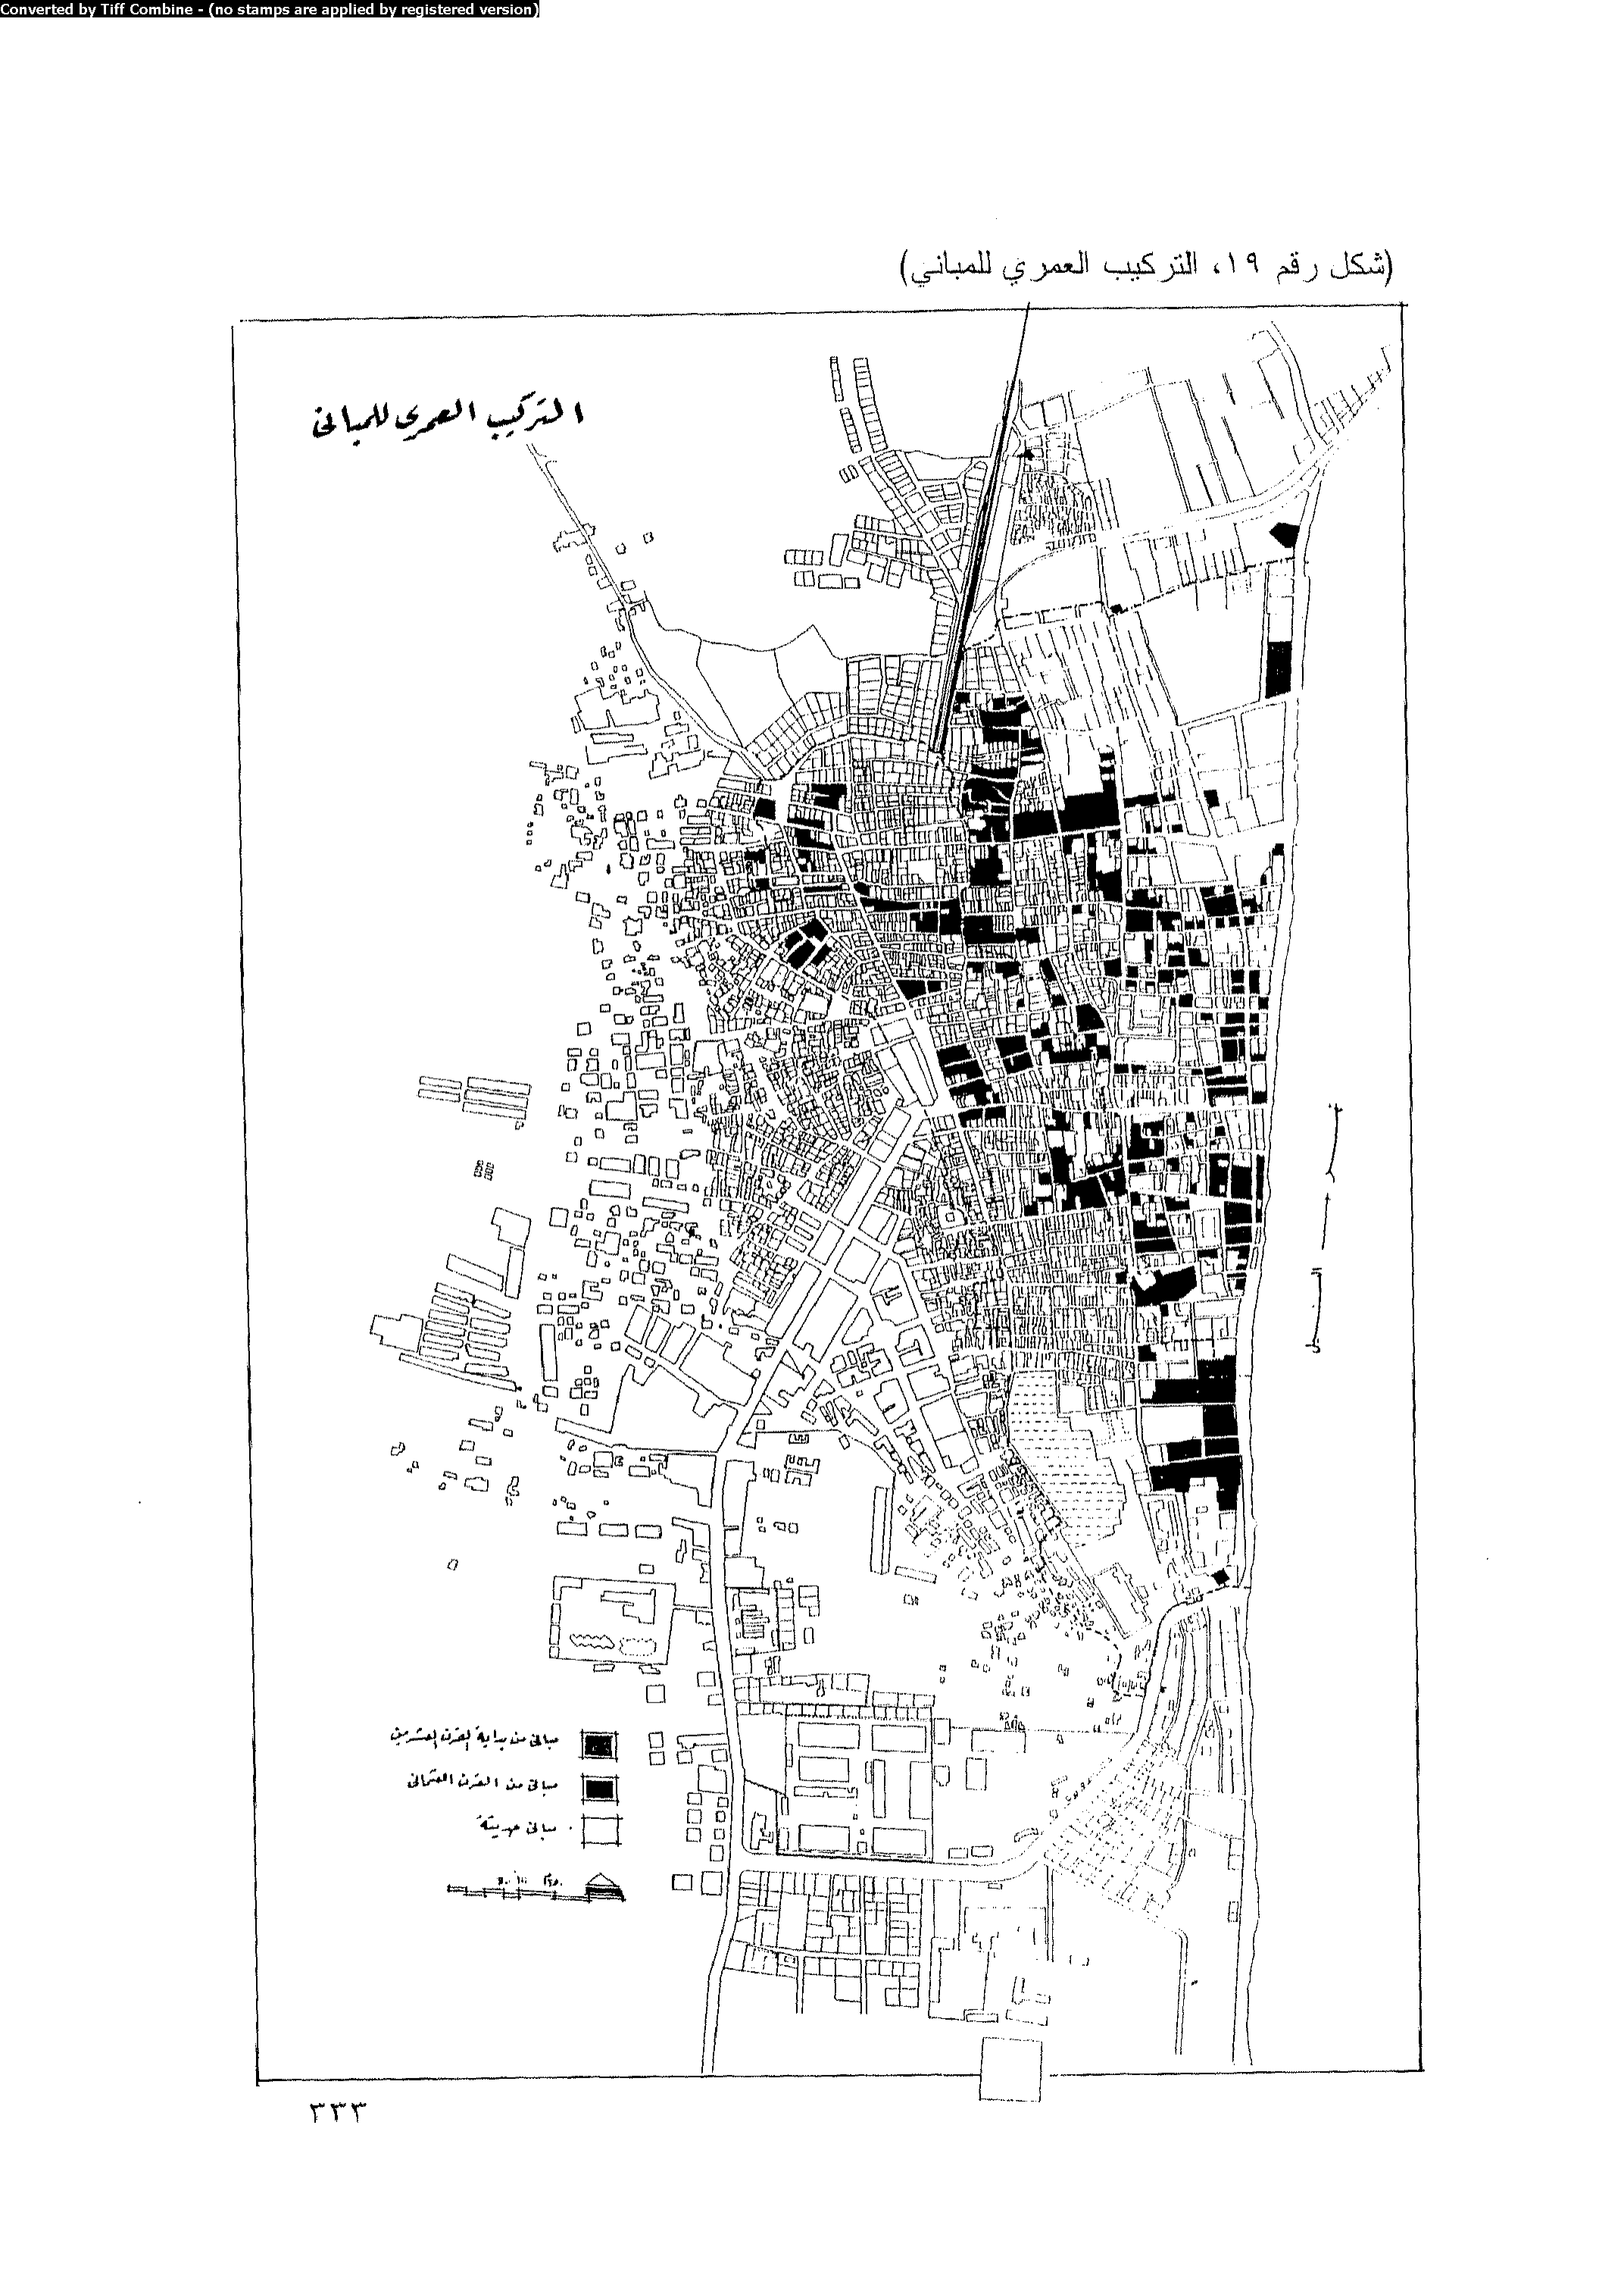 Converted by Tiff Combine - (no stamps are applied by registered version)
(شكل رقم ١٩، التركيب العمري للمباني)
التركيب العمرى للمبانى
مبانى من بداية القرن العشرين
مبانى من القرن العثمانى
مبانى حديثة
٣٣٣